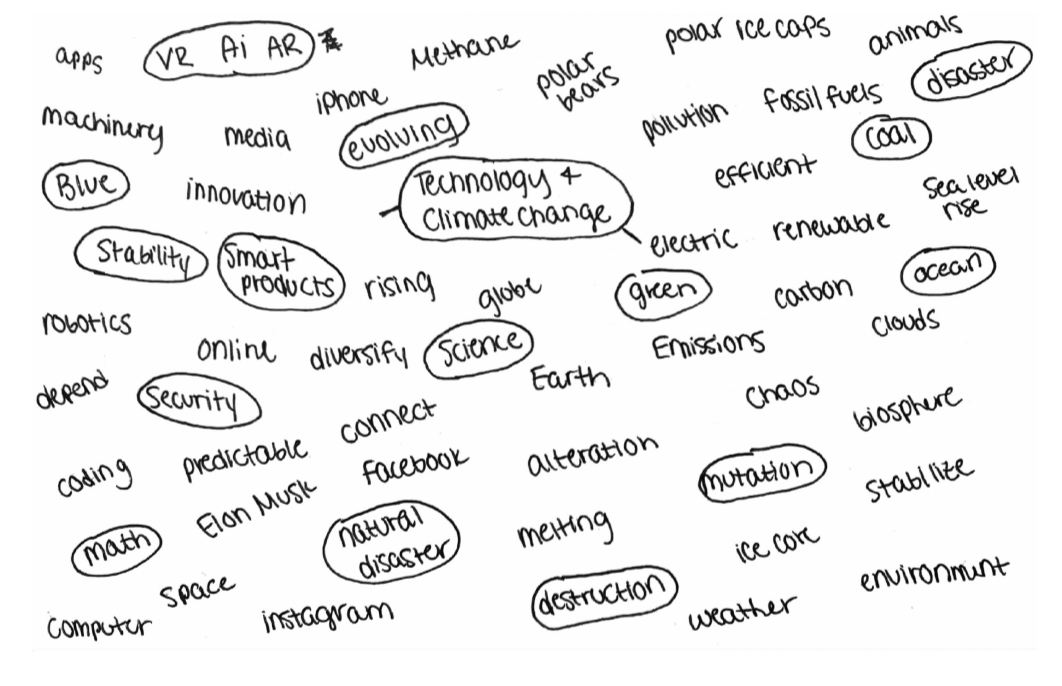 apps
VR Ai AR
Methane
polar ice caps
animals
polar
bears
disaster
iphone
fossil fuels
machinery
media
evolving
pollution
coal
Blue
innovation
Technology +
Climate change
efficient
sea level
rise
Stability
Smart
products
rising
globe
electric
renewable
green
carbon
ocean
robotics
online
diversify
Science
Emissions
clouds
depend
Security
connect
Earth
chaos
biosphere
coding
predictable
facebook
alteration
mutation
stablize
math
Elon Musk
natural
disaster
melting
ice core
environment
space
computer
instagram
destruction
weather